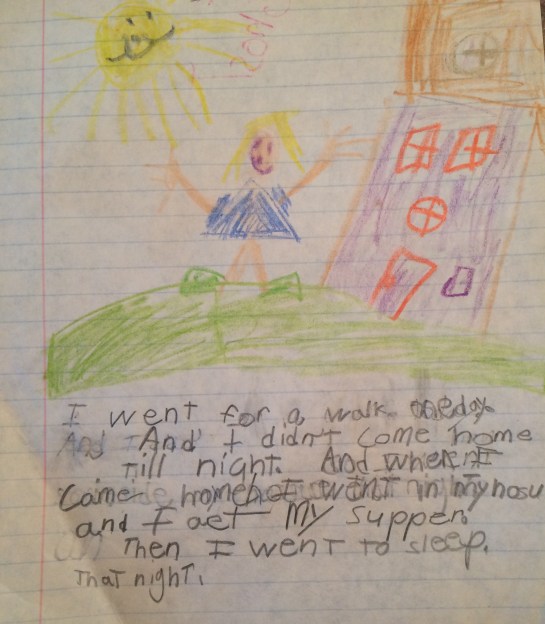 100%
I went for a walk oneday.
And And I didn't come home
till night. And when I
came home I went in my hosu
and I aet my supper.
Then I went to sleep.
That night.